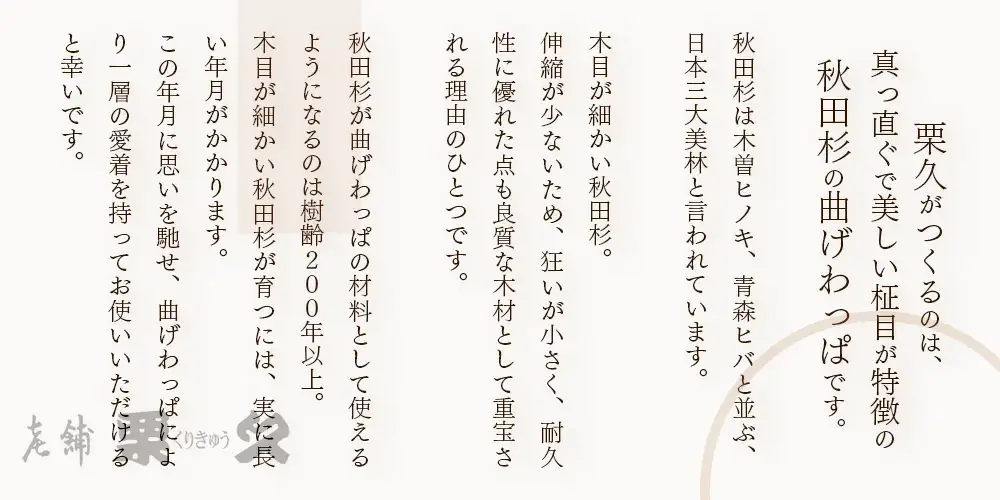 栗久がつくるのは、
真っ直ぐで美しい柾目が特徴の
秋田杉の曲げわっぱです。
秋田杉は木曽ヒノキ、青森ヒバと並ぶ、
日本三大美林と言われています。
木目が細かい秋田杉。
伸縮が少ないため、狂いが小さく、耐久
性に優れた点も良質な木材として重宝さ
れる理由のひとつです。
秋田杉が曲げわっぱの材料として使える
ようになるのは樹齢200年以上。
木目が細かい秋田杉が育つには、実に長
い年月がかかります。
この年月に思いを馳せ、曲げわっぱによ
り一層の愛着を持ってお使いいただける
と幸いです。
老舗 栗久
くりきゅう